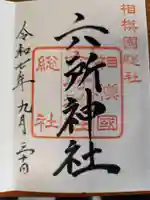 相模國総社
六所神社
相模國
総社
令和七年九月三十日